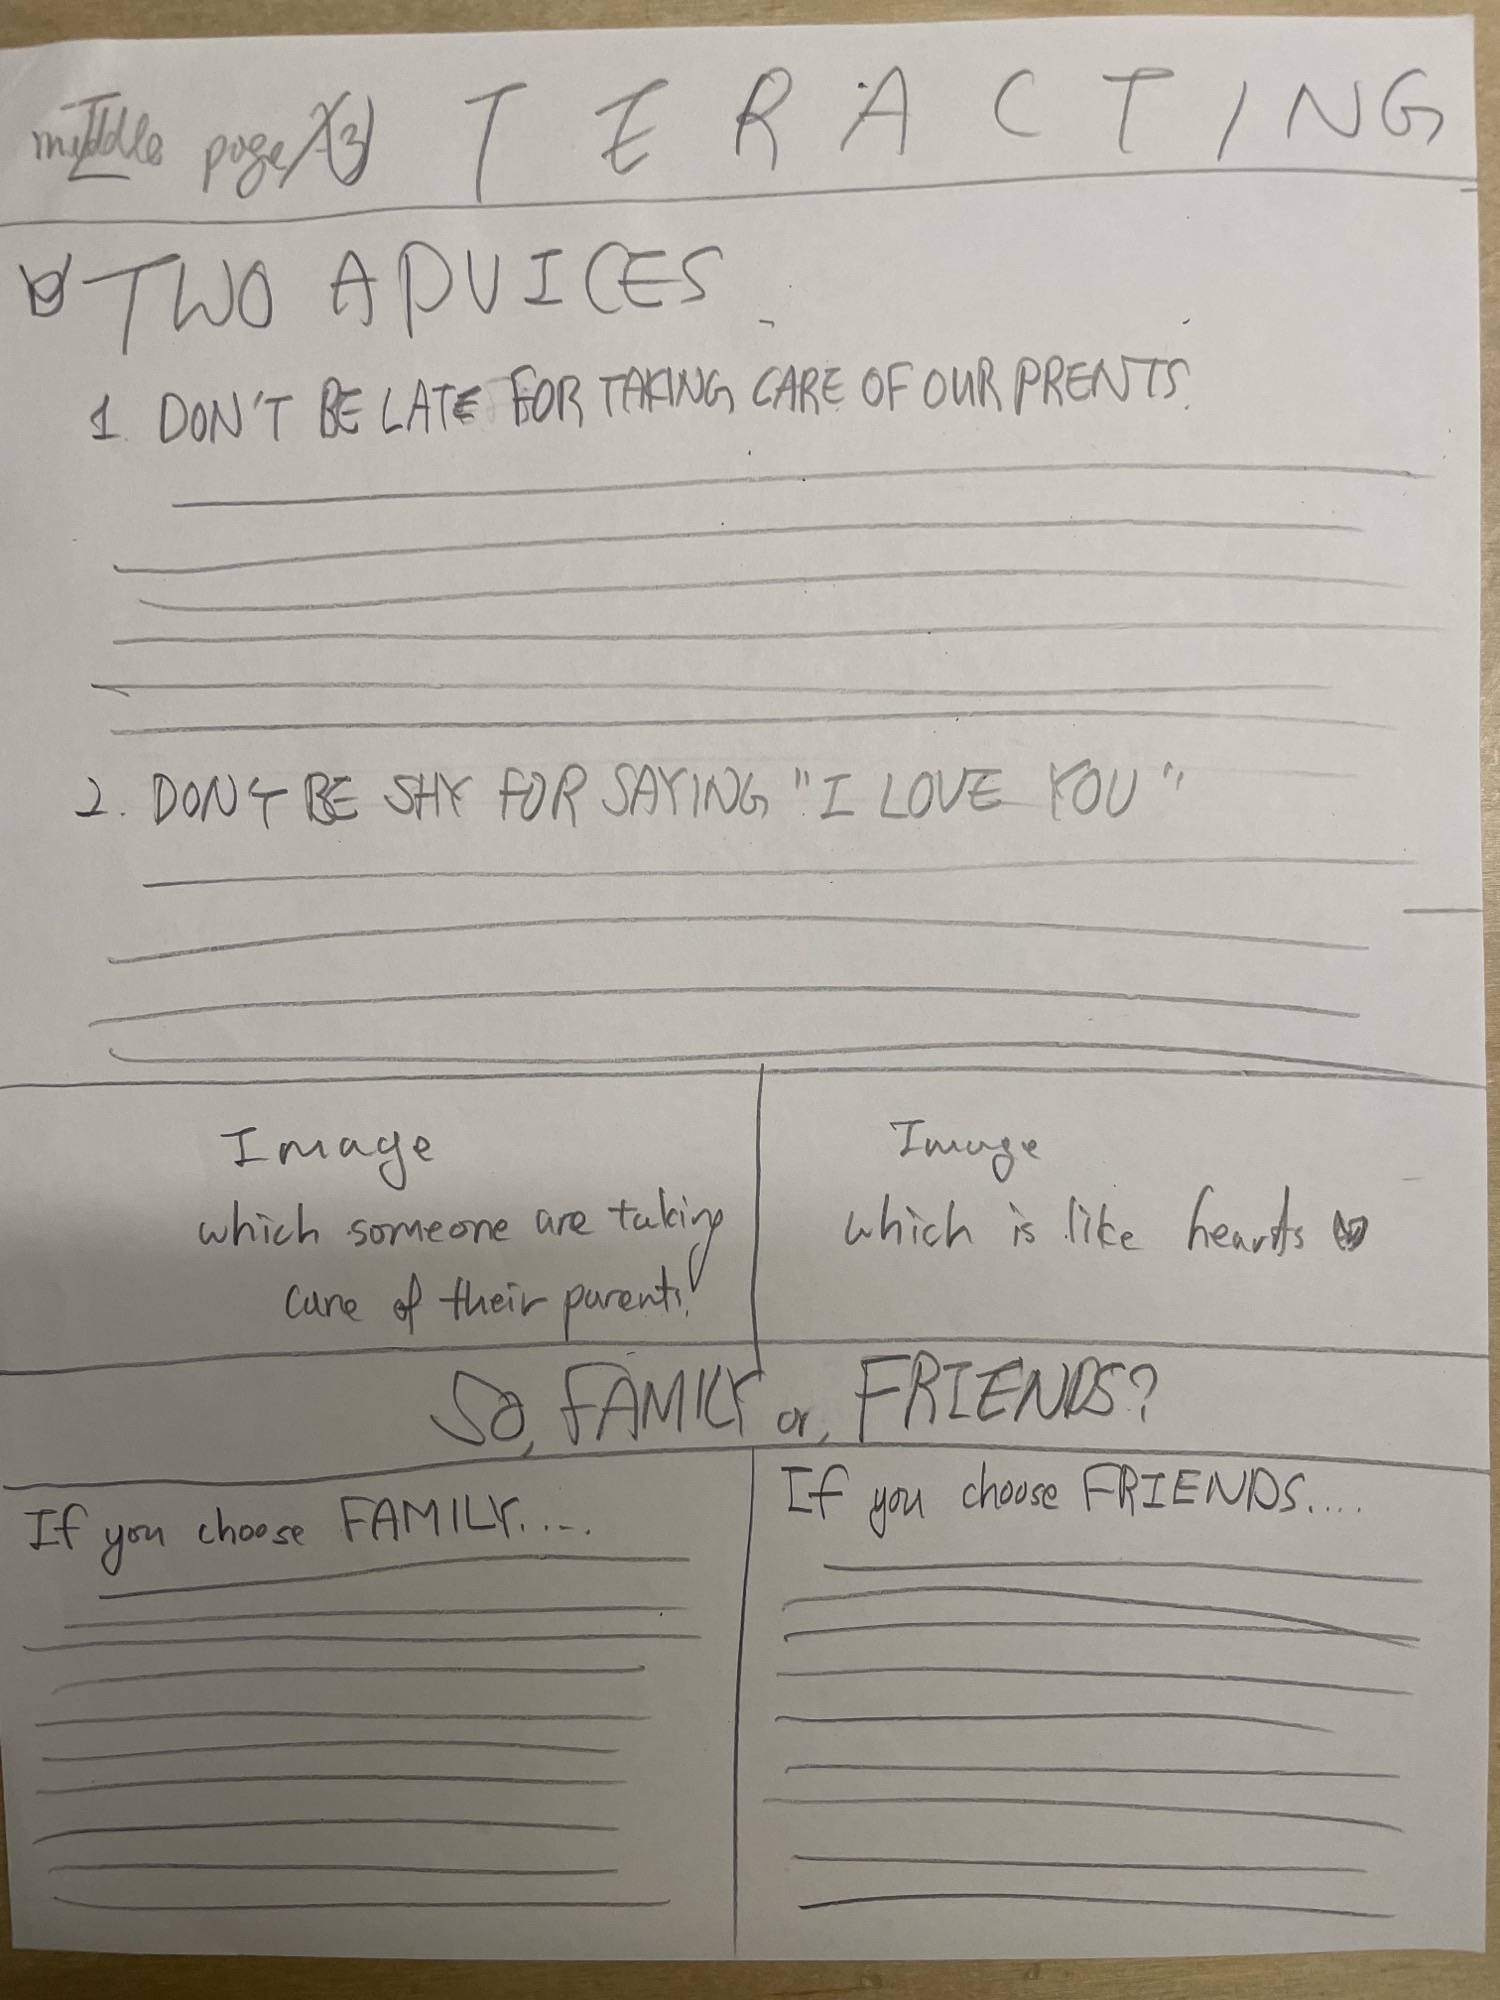 middle page (3) T E R A C T I N G
TWO ADVICES
1 DON'T BE LATE FOR TAKING CARE OF OUR PRENTS.
2. DON'T BE SHY FOR SAYING "I LOVE YOU"
Image
which someone are taking
care of their parents.
Image
which is like hearts
So, FAMILY or, FRIENDS?
If you choose FAMILY.....
If you choose FRIENDS....